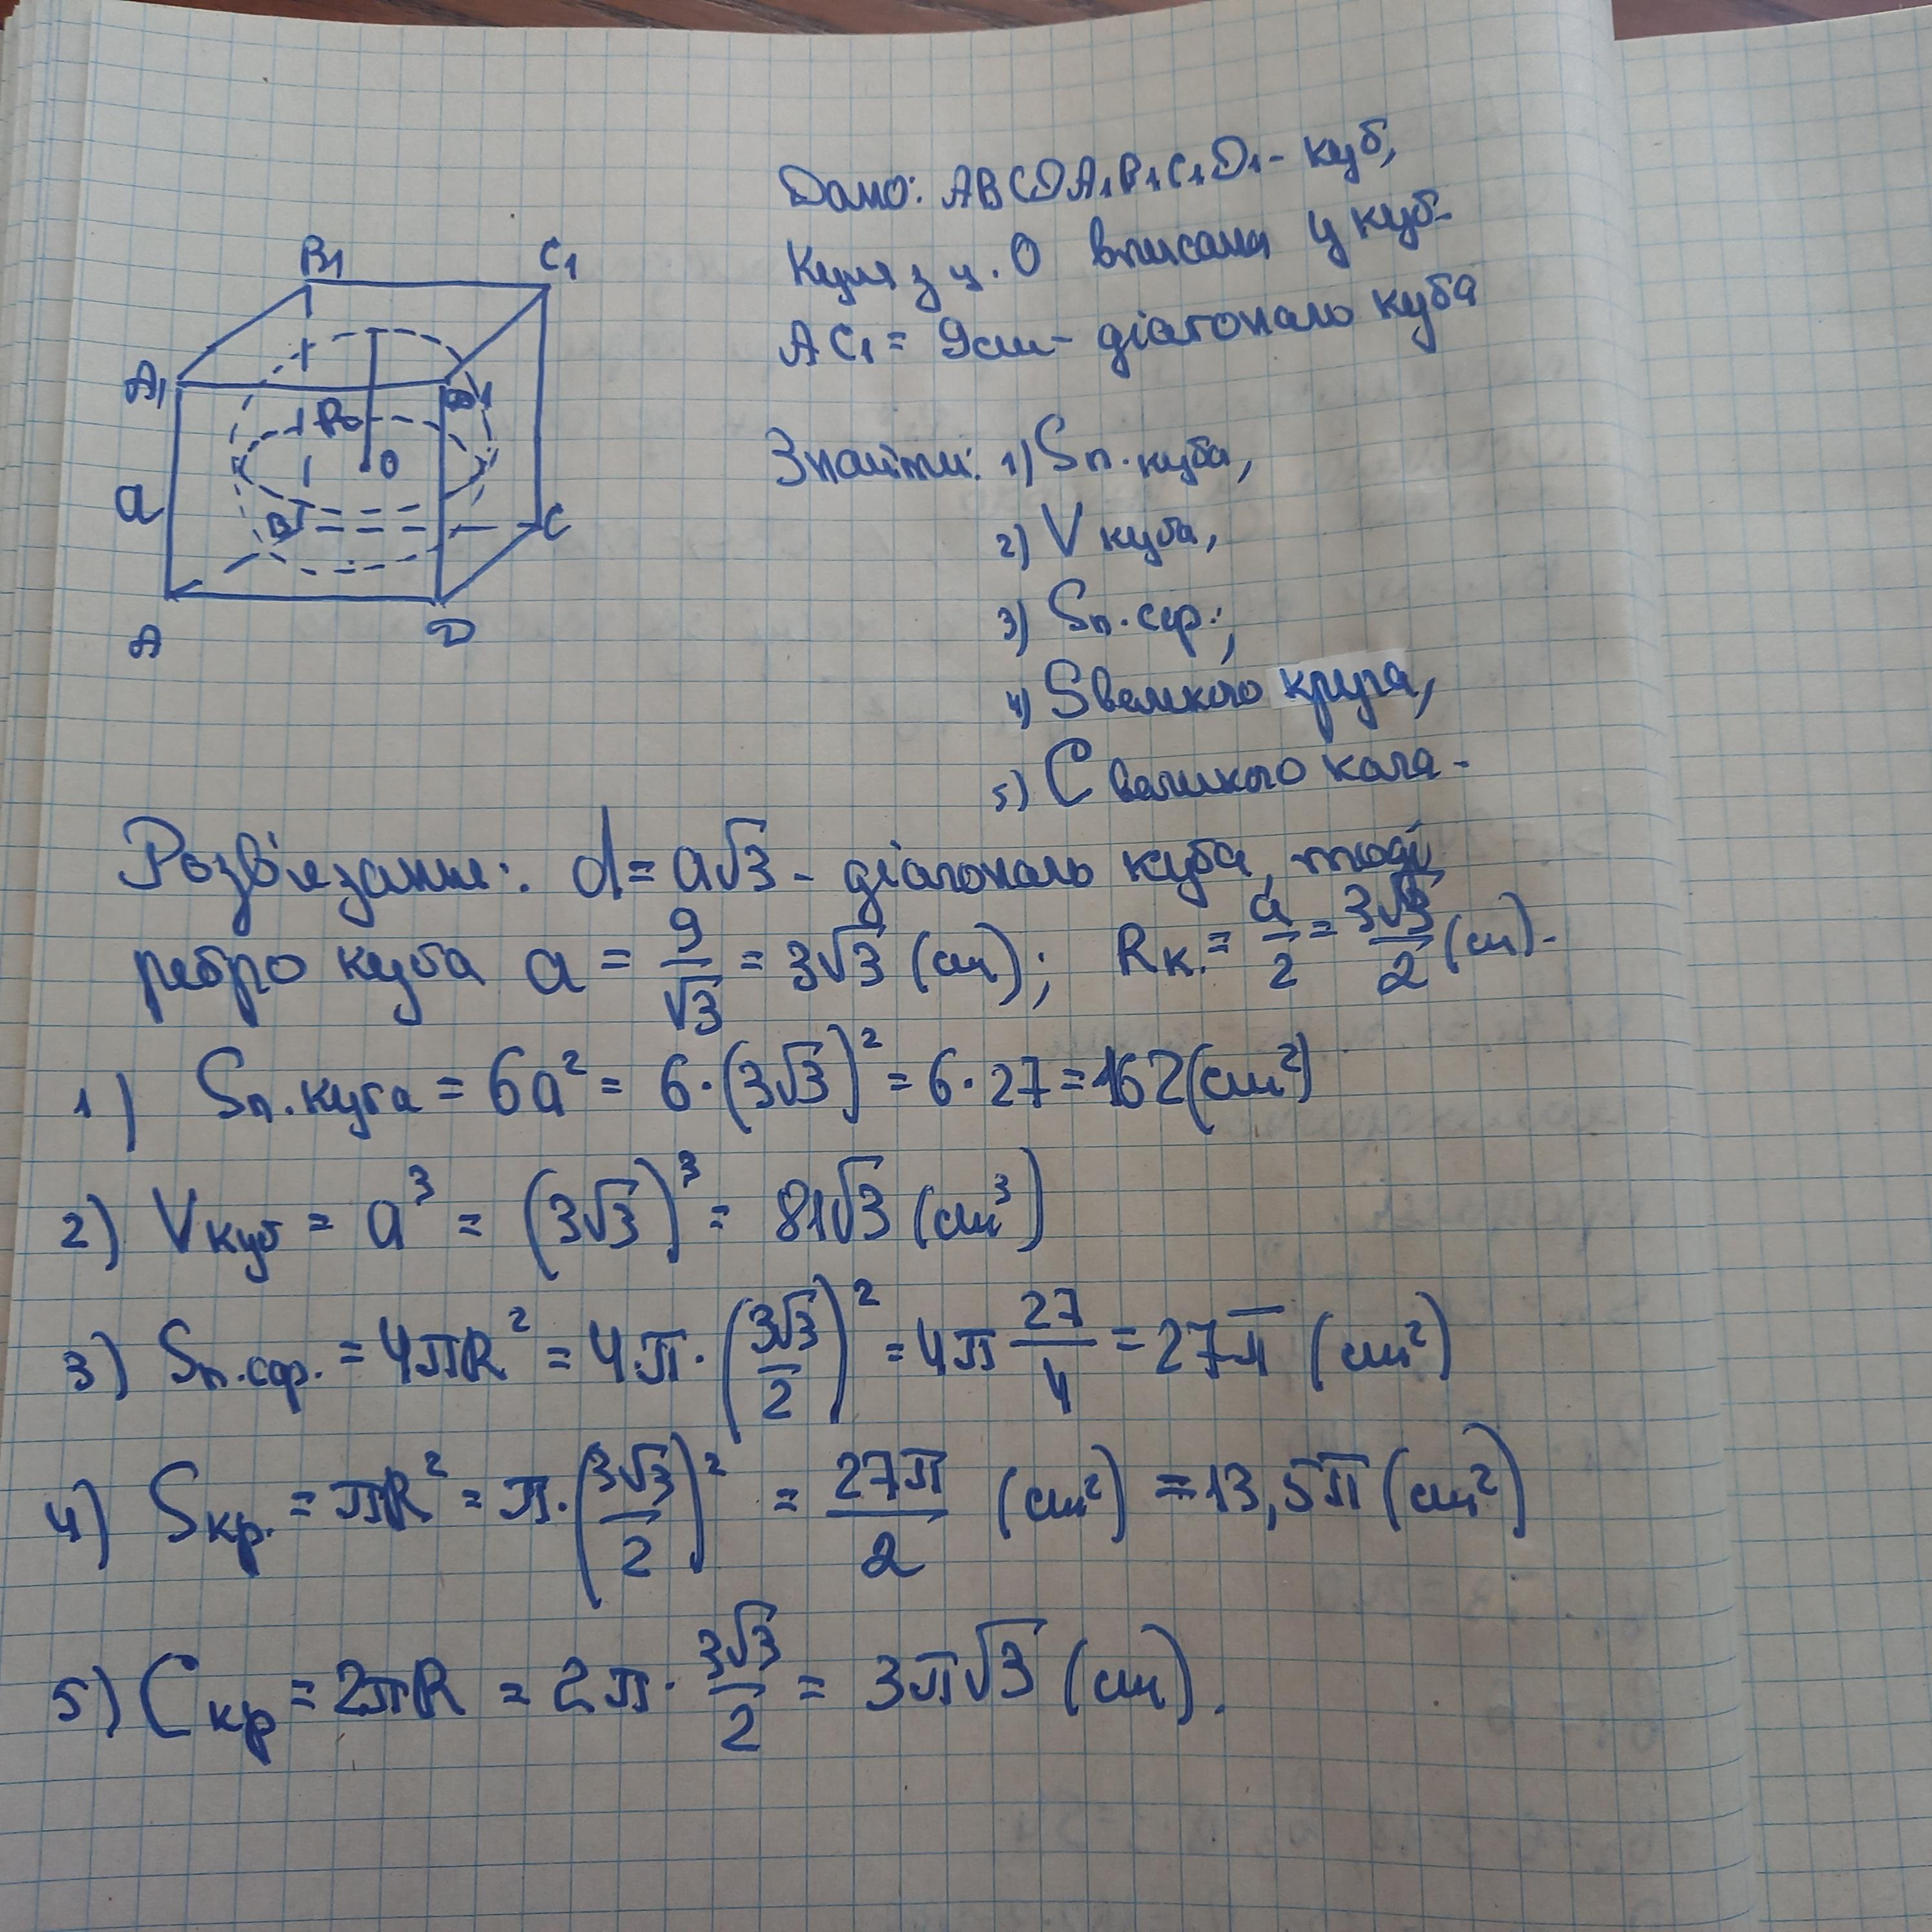 B₁ C₁
A₁ D₁
R
O
a
B C
A D
Дано: ABCDA₁B₁C₁D₁ - куб,
Куля з ц. О вписана у куб.
AC₁ = 9см - діагональ куба
Знайти: 1) Sп. куба,
2) V куба,
3) Sп. сф.,
4) Sвеликого круга,
5) C великого кола.
Розв'язання: d = a√3 - діагональ куба, тоді
ребро куба a = 9/√3 = 3√3 (см); Rк. = a/2 = 3√3/2 (см).
1) Sп. куба = 6a² = 6·(3√3)² = 6·27 = 162 (см²)
2) Vкуб = a³ = (3√3)³ = 81√3 (см³)
3) Sп. сф. = 4πR² = 4·π·(3√3/2)² = 4π 27/4 = 27π (см²)
4) Sкр. = πR² = π·(3√3/2)² = 27π/2 (см²) = 13,5π (см²)
5) Cкр = 2πR = 2π·3√3/2 = 3π√3 (см).